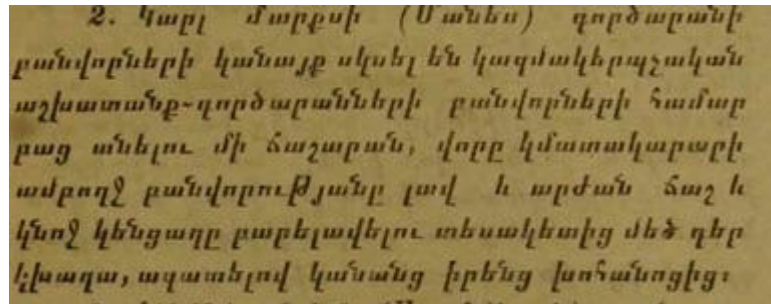 2. Կարլ մարքսի (Մանես) գործարանի
բանվորների կանայք սկսել են կազմակերպչական
աշխատանք-գործարանների բանվորների համար
բաց անելու մի ճաշարան, վորը կմատակարարի
ամբողջ բանվորությանը լավ և արժան ճաշ և
կնոջ կենցաղը բարելավելու տեսակետից մեծ դեր
կխաղա, ազատելով կանանց իրենց խոհանոցից։